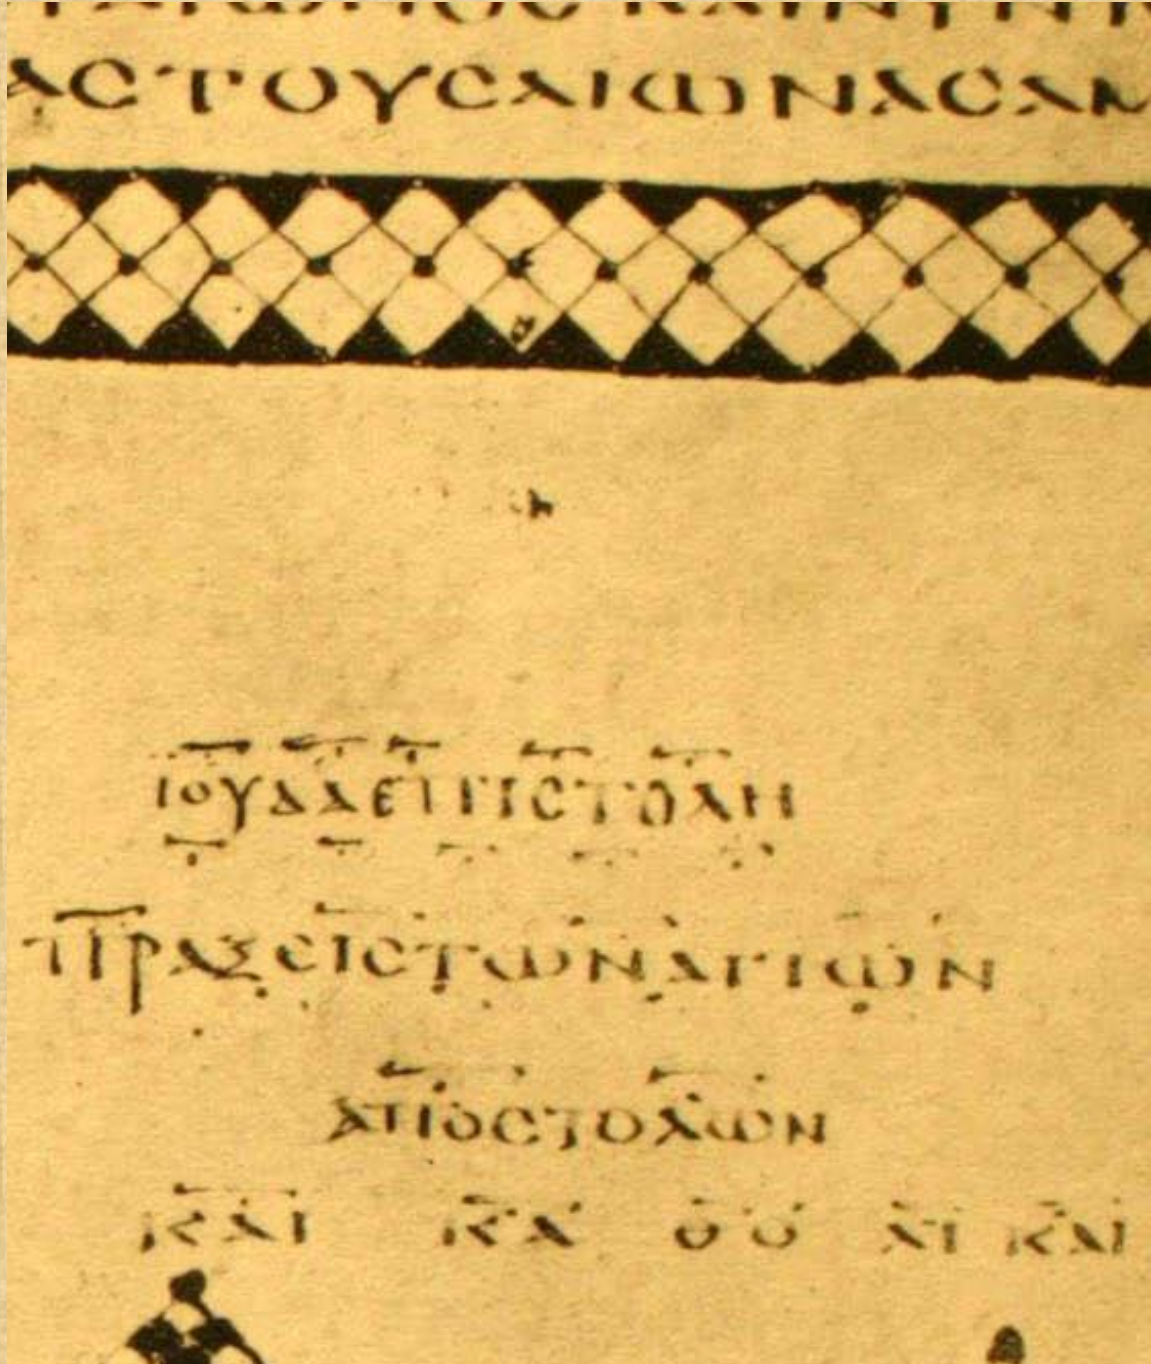 ΑϹΤΟΥϹΑΙΩΝΑϹΑΜ
ΙΟΥΔΑΕΠΙϹΤΟΛΗ
ΠΡΑΞΕΙϹΤΩΝΑΓΙΩΝ
ΑΠΟϹΤΟΛΩΝ
ΚΑΙ ΚΑ ΑΙ ΚΑΙ